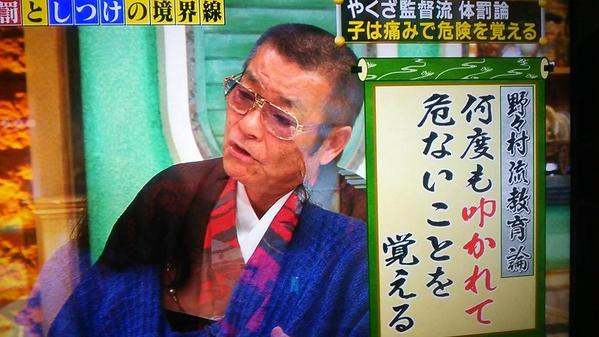 罰としつけの境界線
やくざ監督流 体罰論
子は痛みで危険を覚える
野々村流教育論
何度も叩かれて
危ないことを
覚える